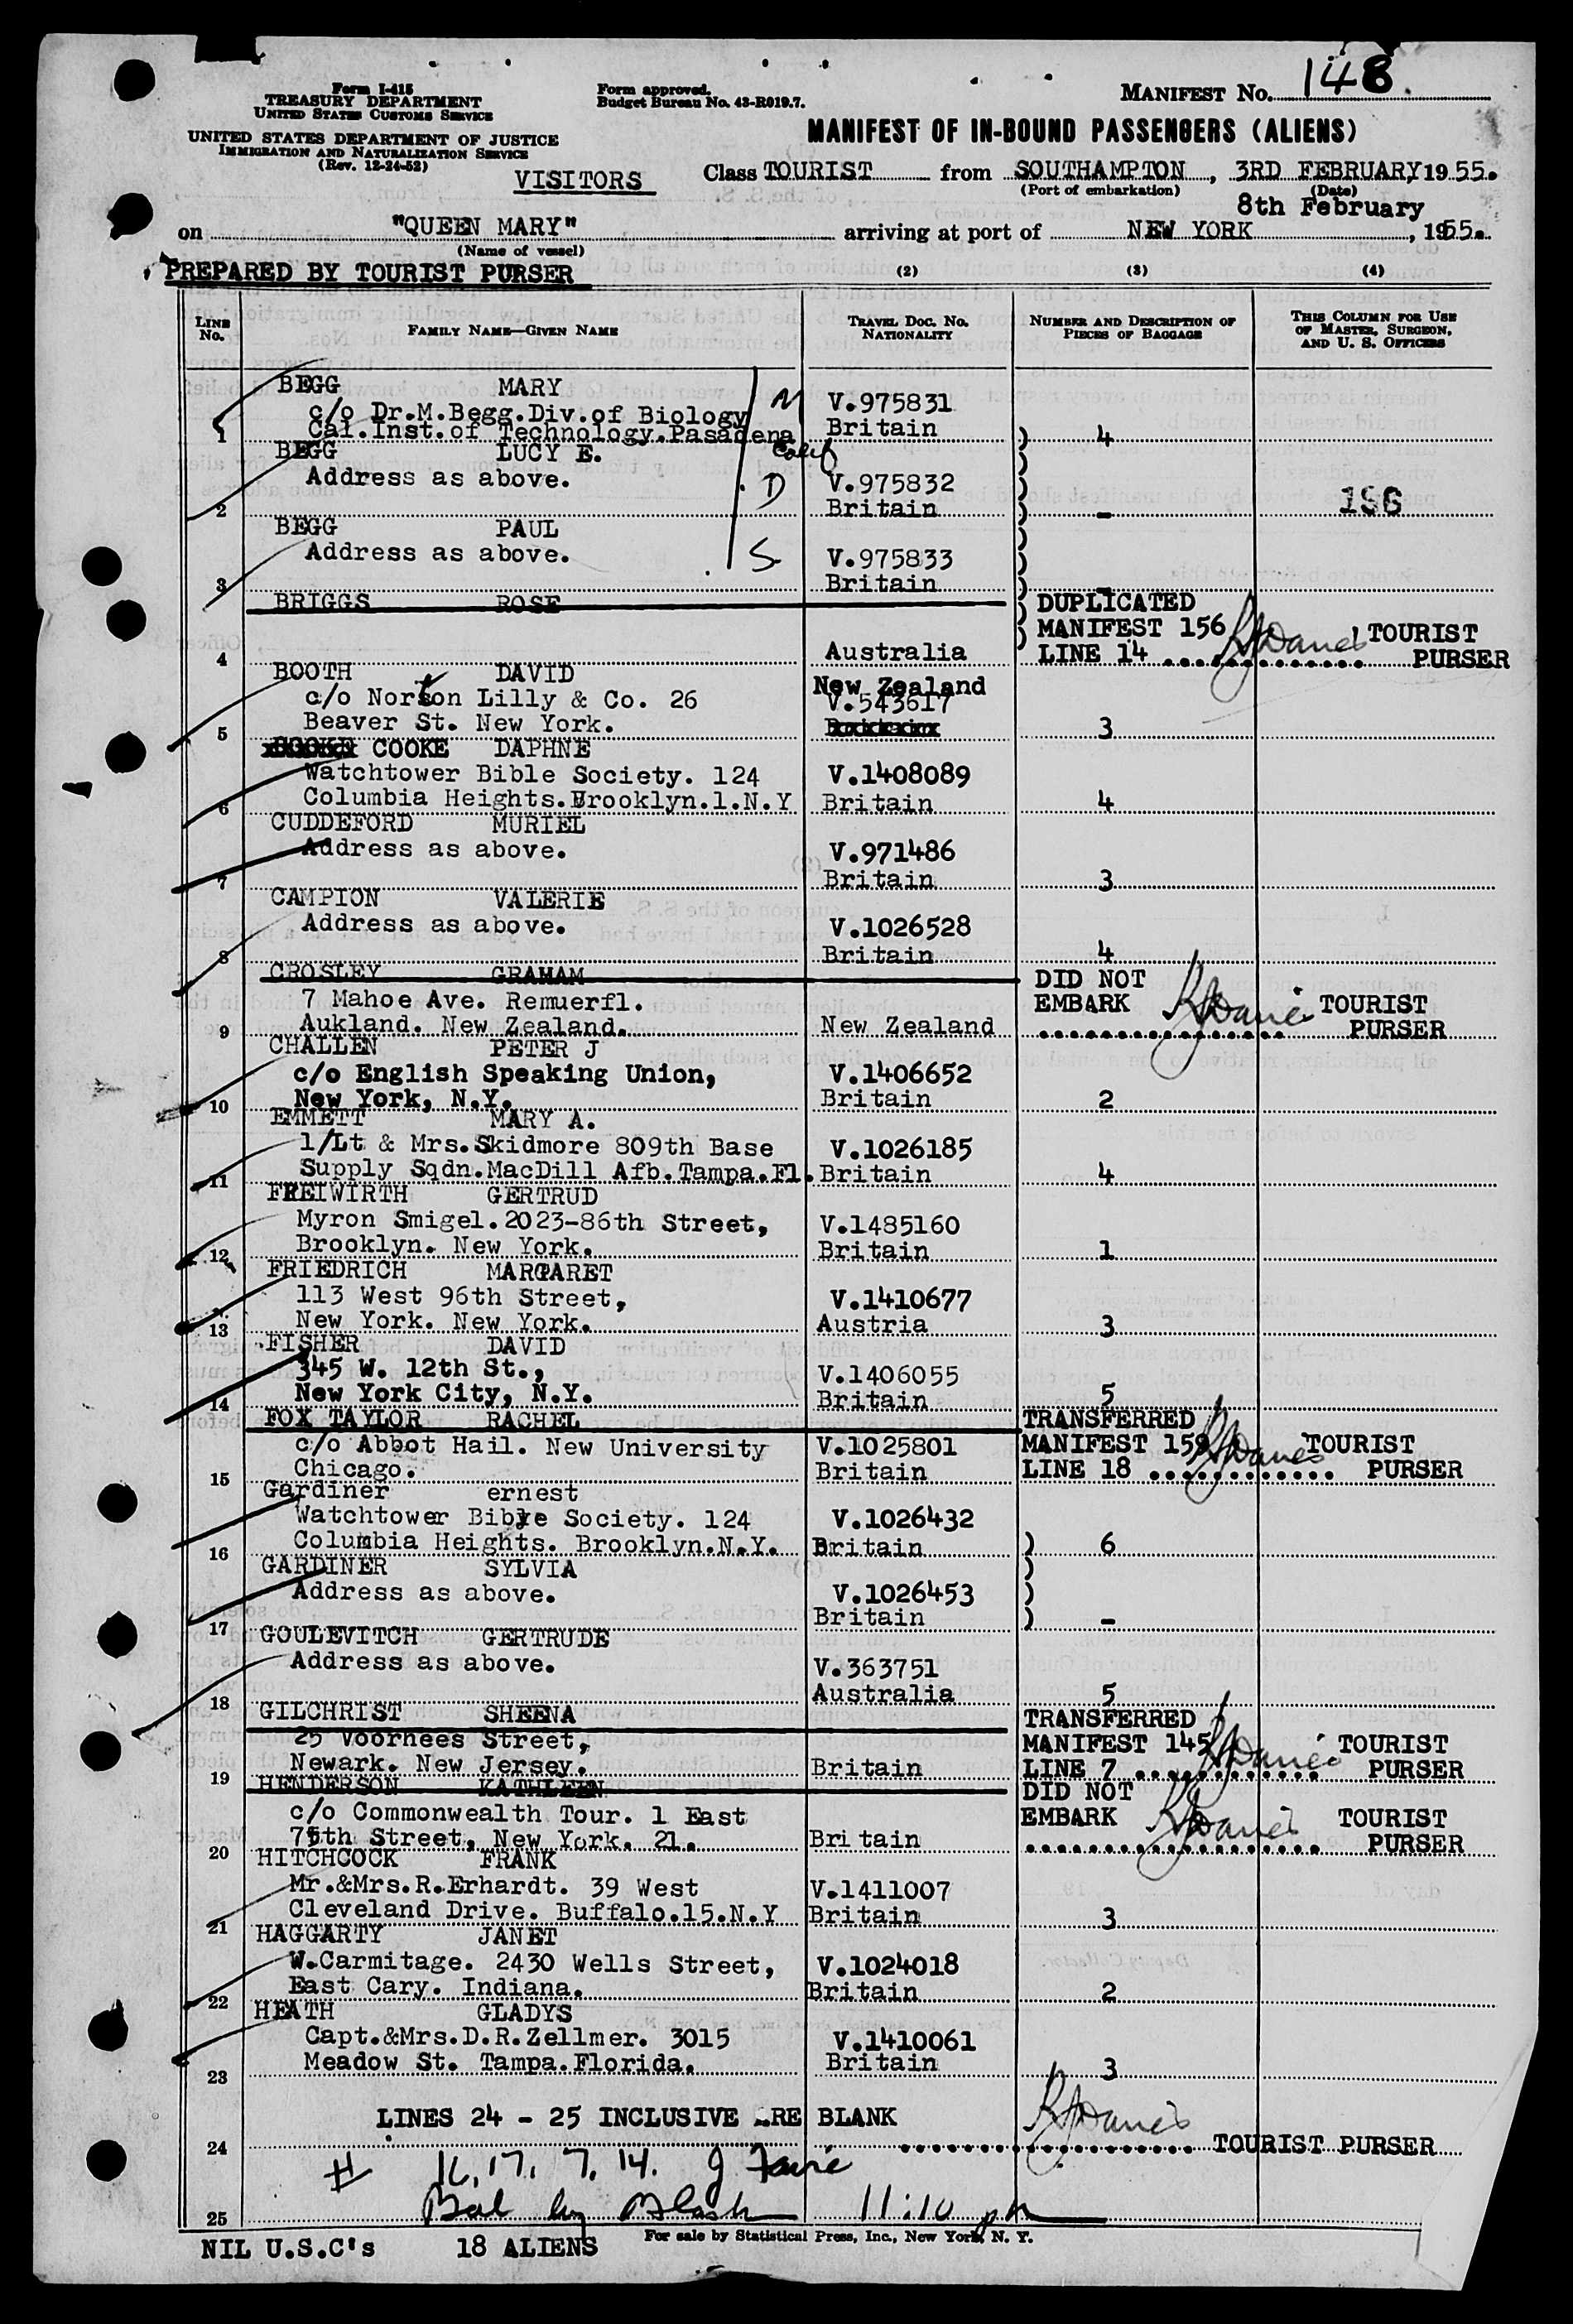 Form I-415
TREASURY DEPARTMENT
UNITED STATES CUSTOMS SERVICE
UNITED STATES DEPARTMENT OF JUSTICE
IMMIGRATION AND NATURALIZATION SERVICE
(Rev. 12-24-52)
Form approved.
Budget Bureau No. 43-R019.7.
MANIFEST No. 148.
MANIFEST OF IN-BOUND PASSENGERS (ALIENS)
VISITORS
Class TOURIST from SOUTHAMPTON, 3RD FEBRUARY, 1955.
(Port of embarkation) (Date)
8th February
on "QUEEN MARY" arriving at port of NEW YORK, 1955.
(Name of vessel)
PREPARED BY TOURIST PURSER (2) (3) (4)
LINE No. FAMILY NAME—GIVEN NAME TRAVEL DOC. NO. NATIONALITY NUMBER AND DESCRIPTION OF PIECES OF BAGGAGE THIS COLUMN FOR USE OF MASTER, SURGEON, AND U. S. OFFICERS
BEGG MARY M
c/o Dr.M.Begg.Div.of Biology V.975831
1 Cal.Inst.of Technology.Pasadena Calif Britain 4
BEGG LUCY E.
Address as above. D V.975832
2 Britain - 196
BEGG PAUL
Address as above. S V.975833
3 Britain -
BRIGGS ROSE DUPLICATED
MANIFEST 156 TOURIST
4 Australia LINE 14 PURSER
BOOTH DAVID New Zealand
c/o Norton Lilly & Co. 26 V.543617
5 Beaver St. New York. 3
COOKE DAPHNE
Watchtower Bible Society. 124 V.1408089
6 Columbia Heights.Brooklyn.1.N.Y Britain 4
CUDDEFORD MURIEL
Address as above. V.971486
7 Britain 3
CAMPION VALERIE
Address as above. V.1026528
8 Britain 4
CROSLEY GRAHAM DID NOT
7 Mahoe Ave. Remuerfl. EMBARK TOURIST
9 Aukland. New Zealand. New Zealand PURSER
CHALLEN PETER J
c/o English Speaking Union, V.1406652
10 New York, N.Y. Britain 2
EMMETT MARY A.
1/Lt & Mrs.Skidmore 809th Base V.1026185
11 Supply Sqdn.MacDill Afb.Tampa.Fl. Britain 4
FREIWIRTH GERTRUD
Myron Smigel.2023-86th Street, V.1485160
12 Brooklyn. New York. Britain 1
FRIEDRICH MARGARET
113 West 96th Street, V.1410677
13 New York. New York. Austria 3
FISHER DAVID
345 W. 12th St., V.1406055
14 New York City, N.Y. Britain 5
FOX TAYLOR RACHEL TRANSFERRED
c/o Abbot Hail. New University V.1025801 MANIFEST 159 TOURIST
15 Chicago. Britain LINE 18 PURSER
Gardiner ernest
Watchtower Bible Society. 124 V.1026432
16 Columbia Heights. Brooklyn.N.Y. Britain 6
GARDINER SYLVIA
Address as above. V.1026453
17 Britain -
GOULEVITCH GERTRUDE
Address as above. V.363751
18 Australia 5
GILCHRIST SHEENA TRANSFERRED
25 Voorhees Street, MANIFEST 145 TOURIST
19 Newark. New Jersey. Britain LINE 7 PURSER
HENDERSON KATHLEEN DID NOT
c/o Commonwealth Tour. 1 East EMBARK TOURIST
20 75th Street, New York. 21. Britain PURSER
HITCHCOCK FRANK
Mr.&Mrs.R.Erhardt. 39 West V.1411007
21 Cleveland Drive. Buffalo.15.N.Y Britain 3
HAGGARTY JANET
W.Carmitage. 2430 Wells Street, V.1024018
22 East Cary. Indiana. Britain 2
HEATH GLADYS
Capt.&Mrs.D.R.Zellmer. 3015 V.1410061
23 Meadow St. Tampa.Florida. Britain 3
LINES 24 - 25 INCLUSIVE ARE BLANK
24 TOURIST PURSER
# 16, 17, 7, 14.
25 Bal by 11:10 pm
NIL U.S.C's 18 ALIENS For sale by Statistical Press, Inc., New York, N. Y.